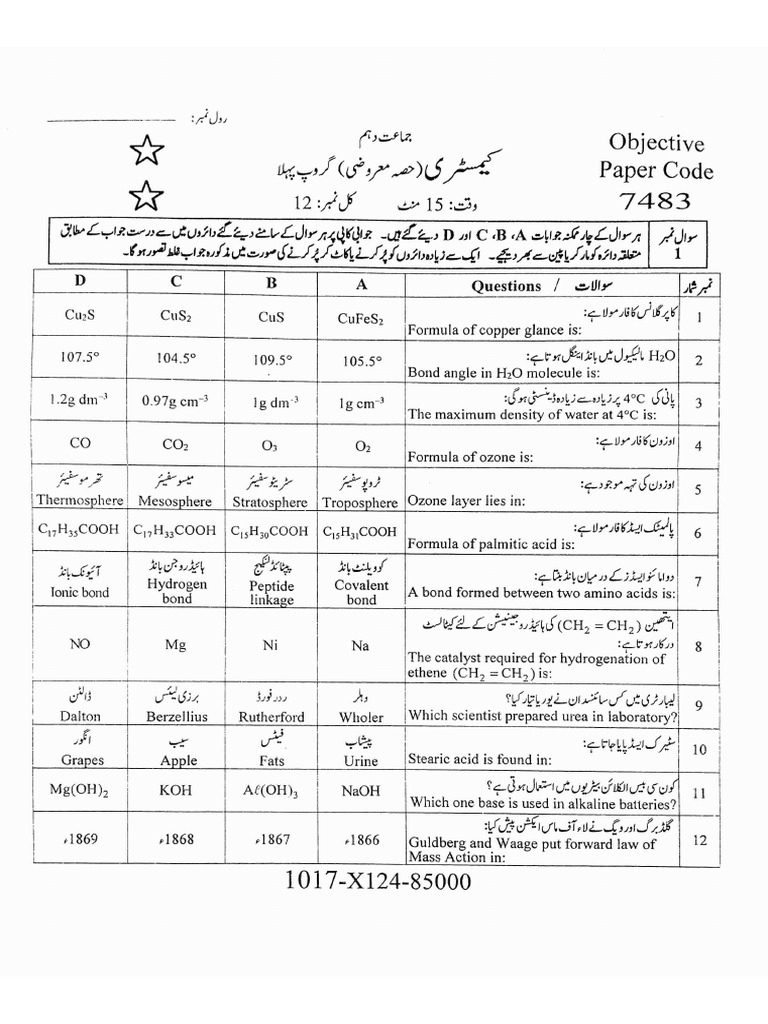 رول نمبر: ـــــــــــــــ
جماعت دہم
Objective
Paper Code
7483
کیمسٹری (حصہ معروضی) گروپ پہلا
وقت: 15 منٹ کل نمبر: 12
سوال نمبر 1
ہر سوال کے چار ممکنہ جوابات A، B، C اور D دیئے گئے ہیں۔ جوابی کاپی پر ہر سوال کے سامنے دیئے گئے دائروں میں سے درست جواب کے مطابق
متعلقہ دائرہ کو مارکر یا پین سے بھر دیجیے۔ ایک سے زیادہ دائروں کو پُر کرنے یا کاٹ کر پُر کرنے کی صورت میں مذکورہ جواب غلط تصور ہو گا۔
D C B A Questions / سوالات نمبر شمار
کاپر گلانس کا فارمولا ہے:
Cu₂S CuS₂ CuS CuFeS₂ 1
Formula of copper glance is:
H₂O مالیکیول میں بانڈ اینگل ہوتا ہے:
107.5° 104.5° 109.5° 105.5° 2
Bond angle in H₂O molecule is:
پانی کی 4°C پر زیادہ سے زیادہ ڈینسٹی ہوگی:
1.2g dm⁻³ 0.97g cm⁻³ 1g dm⁻³ 1g cm⁻³ 3
The maximum density of water at 4°C is:
اوزون کا فارمولا ہے:
CO CO₂ O₃ O₂ 4
Formula of ozone is:
تھرموسفیئر میسوسفیئر سٹریٹوسفیئر ٹروپوسفیئر اوزون کی تہہ موجود ہے: 5
Thermosphere Mesosphere Stratosphere Troposphere Ozone layer lies in:
پالمیٹک ایسڈ کا فارمولا ہے:
C₁₇H₃₅COOH C₁₇H₃₃COOH C₁₅H₃₀COOH C₁₅H₃₁COOH 6
Formula of palmitic acid is:
آئیونک بانڈ ہائیڈروجن بانڈ پیپٹائڈ لنکیج کوویلنٹ بانڈ دو امائنو ایسڈز کے درمیان بانڈ بنتا ہے: 7
Ionic bond Hydrogen bond Peptide linkage Covalent bond A bond formed between two amino acids is:
ایتھین (CH₂ = CH₂) کی ہائیڈروجینیشن کے لئے کیٹالسٹ
درکار ہوتا ہے:
NO Mg Ni Na 8
The catalyst required for hydrogenation of
ethene (CH₂ = CH₂) is:
ڈالٹن برزی لیئس ردرفورڈ وہلر لیبارٹری میں کس سائنسدان نے یوریا تیار کیا؟ 9
Dalton Berzellius Rutherford Wholer Which scientist prepared urea in laboratory?
انگور سیب فیٹس پیشاب سٹیرک ایسڈ پایا جاتا ہے: 10
Grapes Apple Fats Urine Stearic acid is found in:
کون سی بیس الکلائن بیٹریوں میں استعمال ہوتی ہے؟
Mg(OH)₂ KOH Aℓ(OH)₃ NaOH 11
Which one base is used in alkaline batteries?
گلڈبرگ اور ویگ نے لاء آف ماس ایکشن پیش کیا:
1869ء 1868ء 1867ء 1866ء 12
Guldberg and Waage put forward law of
Mass Action in:
1017-X124-85000